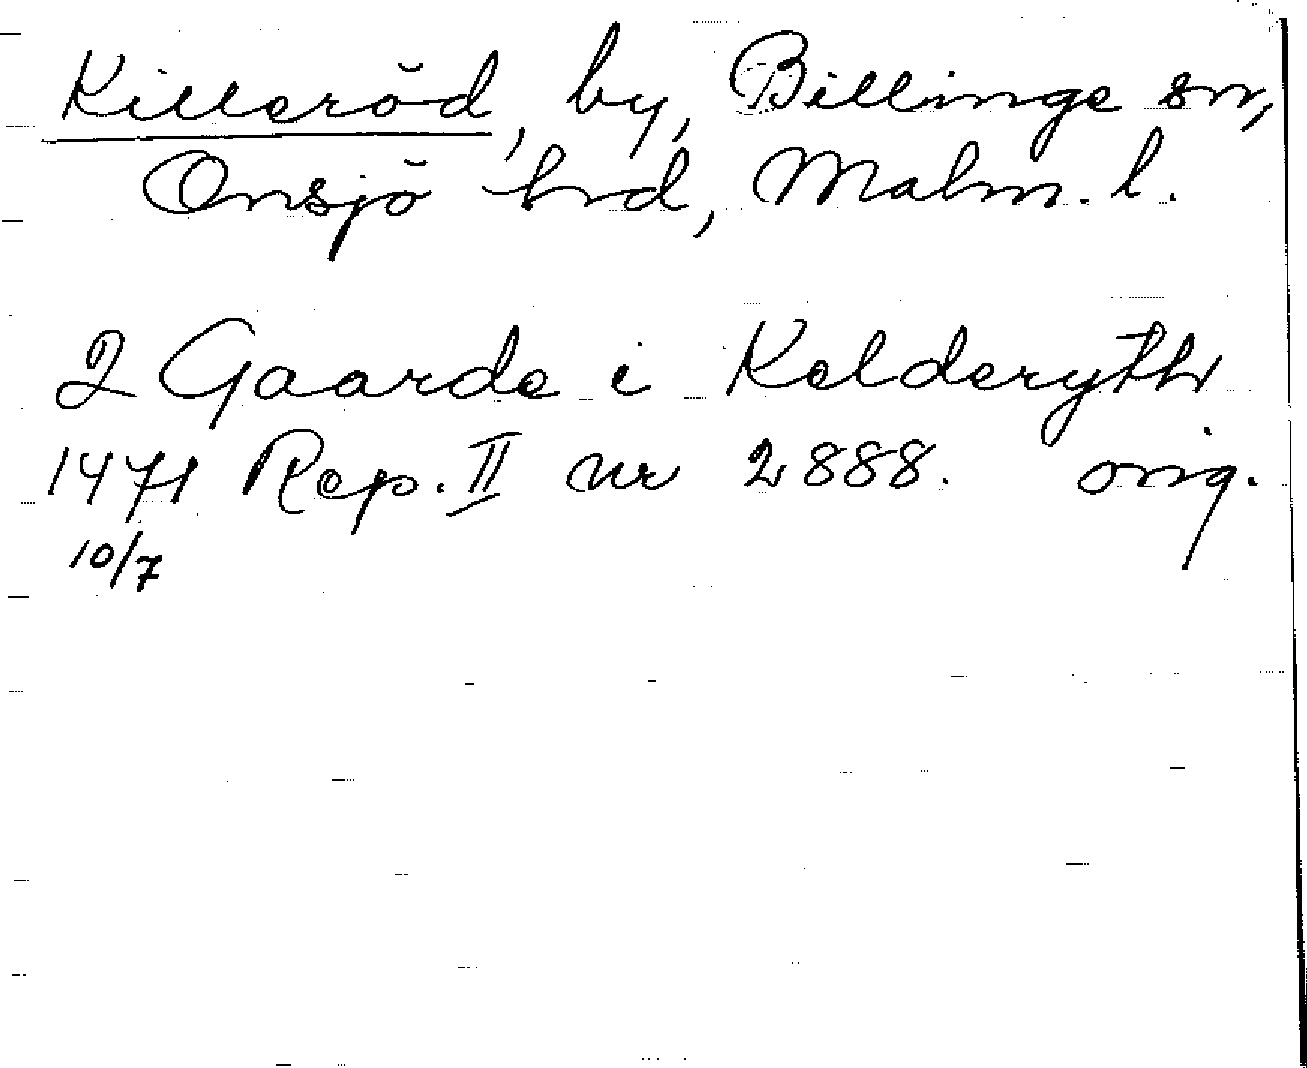 Killeröd, by, Billinge sn,
Onsjö hrd, Malm. l.
2 Gaarde i Kelderyth
1471 Rep. II nr 2888. orig.
10/7